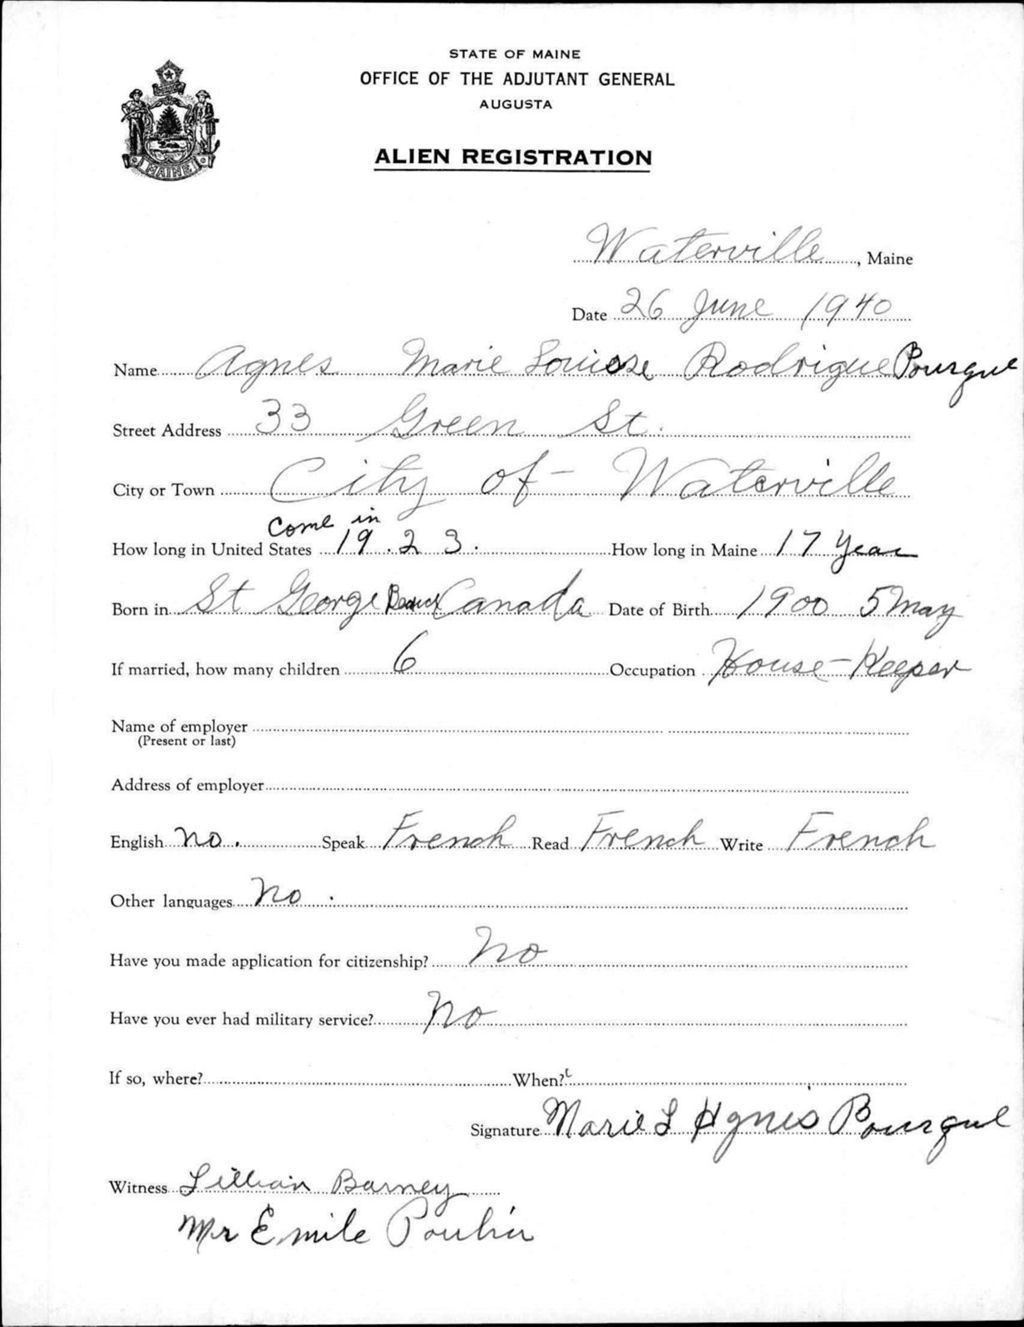 STATE OF MAINE
OFFICE OF THE ADJUTANT GENERAL
AUGUSTA
ALIEN REGISTRATION
MAINE
Waterville, Maine
Date 26 June 1940
Name Agnes Marie Louisse Rodrigue Pourque
Street Address 33 Green St.
City or Town City of Waterville
Come in
How long in United States 19.23. How long in Maine 17 Year
Born in St George Beauce Canada Date of Birth 1900 5 May
If married, how many children 6 Occupation House-Keeper
Name of employer
(Present or last)
Address of employer
English No. Speak French Read French Write French
Other languages No.
Have you made application for citizenship? No
Have you ever had military service? No
If so, where? When?
Signature Marie L Agnes Bourque
Witness Lillian Barney
Mr Emile Poulin